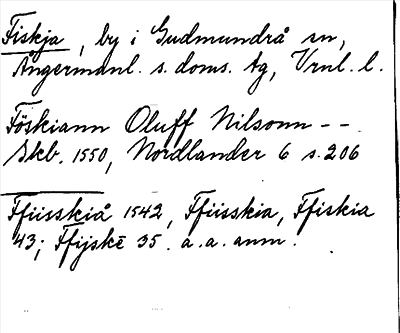 Fiskja, by i Gudmundrå sn,
Ångermanl. s. doms. tg, Vrnl. l.
Föskiann Oluff Nilsonn - -
Skb. 1550, Nordlander 6 s. 206
Ffiisskiå 1542, Ffiisskia, Ffiskia
43; Ffijskē 35. a. a. anm.